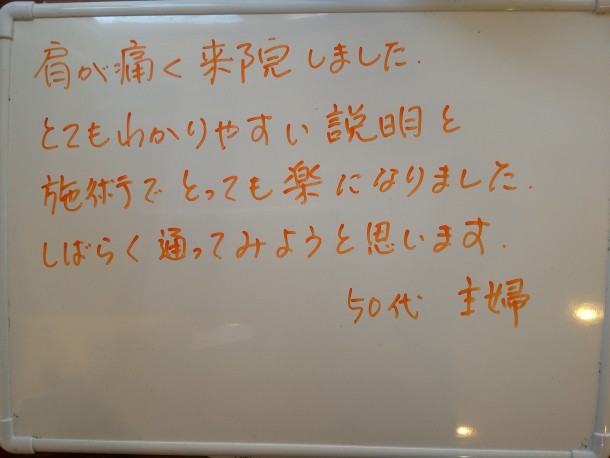 肩が痛く来院しました.
とてもわかりやすい説明と
施術でとっても楽になりました.
しばらく通ってみようと思います.
50代 主婦